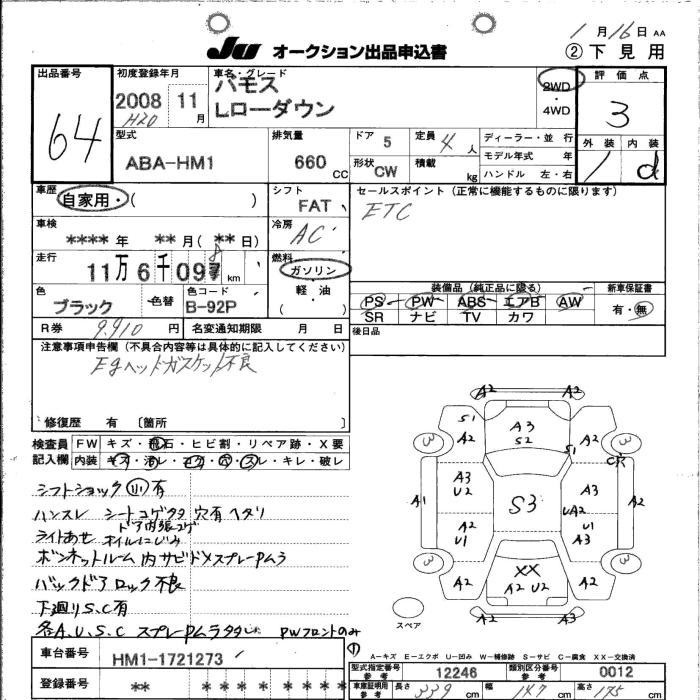 1月16日 AA
JU オークション出品申込書 ②下見用
出品番号 64
初度登録年月 2008 11月 H20
車名・グレード バモス Lローダウン
2WD・4WD
評価点 3
外装 1 内装 d
型式 ABA-HM1
排気量 660 CC
ドア 5
形状 CW
定員 4人
積載 kg
ディーラー・並行
モデル年式 年
ハンドル 左・右
車歴 自家用・( )
シフト FAT
セールスポイント (正常に機能するものに限ります)
ETC
車検 **** 年 ** 月 ( ** 日)
冷房 AC
走行 11万6千097 km 8
燃料 ガソリン 軽・油 ( )
色 ブラック 色替
色コード B-92P
装備品 (純正品に限る)
PS PW ABS エアB AW
SR ナビ TV カワ
新車保証書 有・無
R券 9,910 円
名変通知期限 月 日
後日品
注意事項申告欄 (不具合内容等は具体的に記入してください)
Egヘッドガスケット不良
修復歴 有 [箇所 ]
検査員記入欄
FW キズ・飛石・ヒビ割・リペア跡・X要
内装 キズ・汚れ・コゲ・穴・スレ・キレ・破レ
シフトショック(小)有
ハンスレ シートコゲタタ穴有ヘタリ
ドア内張コゲ
ライトあせ ホイルにじみ
ボンネットルーム内サビドメスプレーPムラ
バックドアロック不良
下廻りS.C有
各A.U.S.C スプレーPムラタタ PWフロントのみ
A2 A2
3 S1 A2 A3 S2 S1 A2 3
A1 A3 U2 S3 A3 UA2 A2
A2 U1 U1 A3
3 A2 XX A2 U2 A2 3
A2 A2
スペア
A-キズ E-エクボ U-凹み W-補修跡 S-サビ C-腐食 XX-交換済
車台番号 HM1-1721273
型式指定番号 参考 12246
類別区分番号 参考 0012
登録番号 ** * * * * * * *
車庫証明用 参考 長さ 339 cm 幅 147 cm 高さ 175 cm